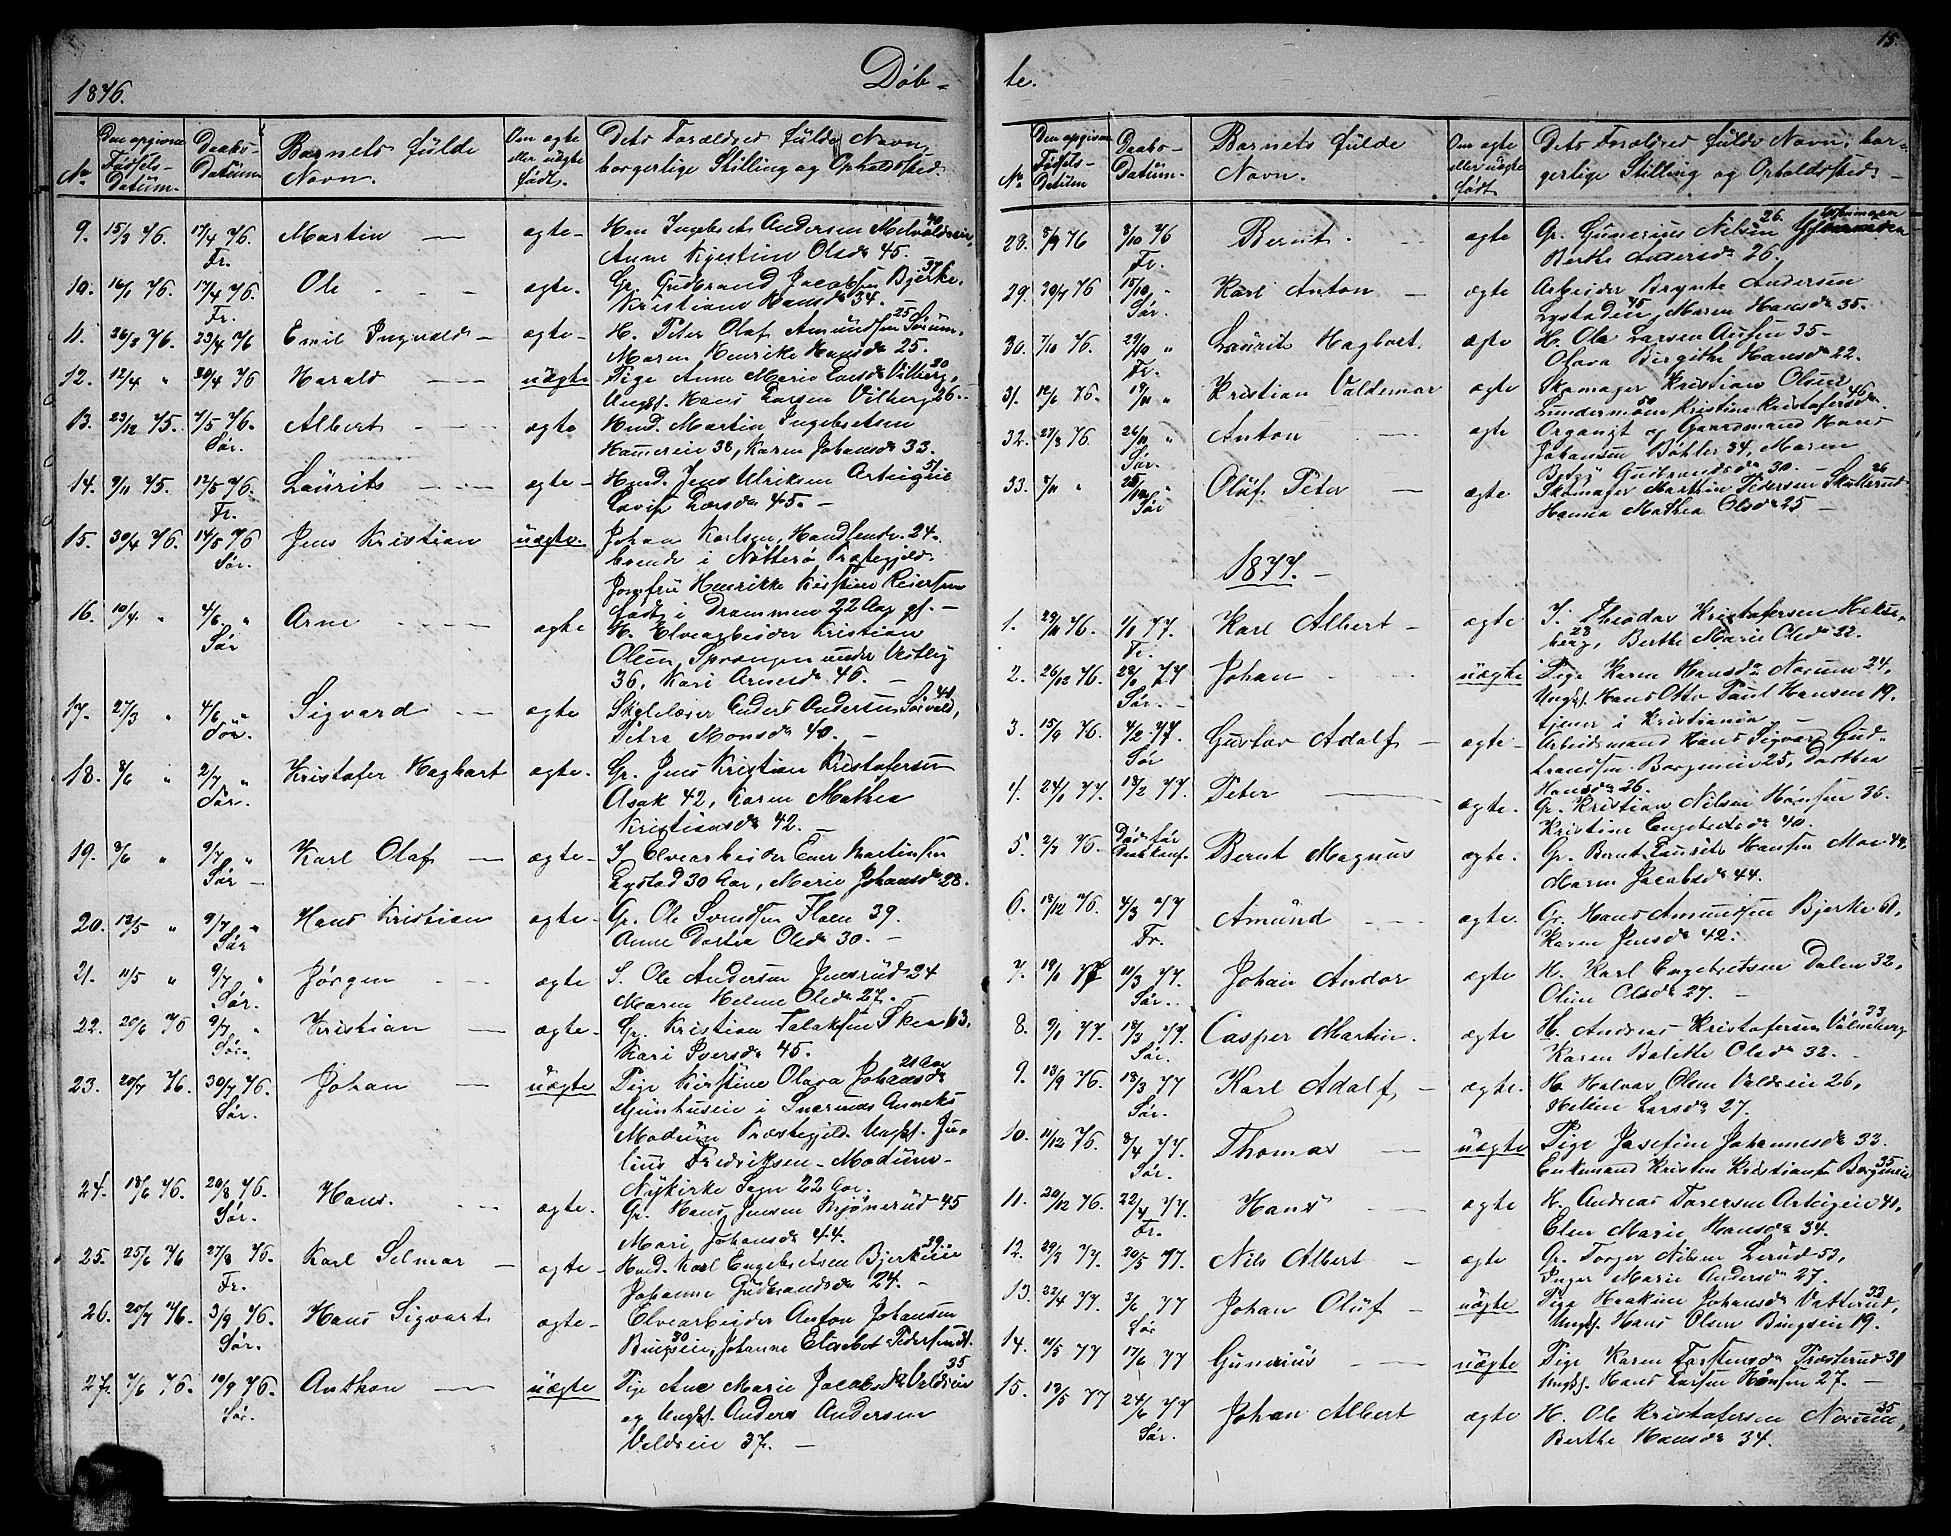 15.
1876. Døb-
No
Den opgivne Fødsels-Datum.
Daabs-Datum
Barnets fulde Navn.
Om ægte eller uægte født.
Dets Forældres fulde Navn, borgerlige Stilling og Opholdssted.
9. 15/3 76. 17/4 76. Fr. Martin — ægte- Anne Kjestine Olsdr 45.
10. 16/1 76. 17/4 76. Fr. Ole - ægte. Gr. Gudbrand Jacobsen Bjerke 37.
Kristiane Hansdr 34.
11. 26/3 76. 23/4 76 Emil Ingvald- ægte- H. Peter Olaf Amundsen Sørum 25.
Maren Henrikke Hansdr 25.
12. 12/4 " 30/4 76 Harald — uægte Pige Anne Marie Larsdr Vilberg 30,
Ungk. Hans Larsen Vilberg 26.
13. 23/12 75. 7/5 76. Sør. Albert — ægte Hmd. Martin Ingebretsen
38, Karen Johansdr 33.
14. 9/11 75. 12/5 76. Fr. Laurits — ægte- Hmd. Jens Ulriksen
Larsdr 45. —
15. 30/4 76. 14/5 76 Sør. Jens Kristian uægte. Johan Karlsen, Handlende. 24.
boende i Nøtterø Præstegjeld.
Jomfru Henrikke Kirstine Reiersen
født i Drammen 22 Aar gl. —
16. 10/4 " 4/6 " Sør Arne — ægte H. Elvearbeider Kristian
Olsen, Sprongen under Vestby
36, Kari Arnesdr 46. —
17. 27/3 " 4/6 " Sør. Sigvard — ægte Skolelærer Anders Andersen 41,
Petra Monsdr 40. —
18. 8/6 " 2/7 " Sør. Kristofer Haghart ægte. Gr. Jens Kristian Kristofersen
Asak 42, Karen Mathea
Kristiansdr 42.
19. 3/6 " 9/7 " Sør - Karl Olaf — ægte- I. Elvearbeider Martinsen
Lystad 30 Aar, Marie Johansdr 28.
20. 13/5 " 9/7 " Sør Hans Kristian ægte- Gr. Ole Svendsen Floen 39.
Anne Dortea Olsdr 30. —
21. 11/5 " 9/7 " Sør. Jørgen - ægte S. Ole Andersen Jensrud 24
Maren Helene Olsdr 27. —
22. 20/6 76 9/7 " Sør. Kristian — ægte- Gr. Kristian 63.
Kari Iversdr 45.
23. 20/7 76. 30/7 76. Sør. Johan — uægte Pige Kirstine Olava Johansdr 21 Aar
i Snarums Anneks
Modum Præstegjeld. Ungk. Ju-
lius Fredriksen - Modum-
Nykirke Sogn 22 Aar.
24. 18/6 76. 20/8 76. Sør. Hans. - ægte. Gr. Hans Jensen 45
Mari Johansdr 44.
25. 25/6 76 27/8 76. Fr. Karl Selmar - ægte- Hmd. Karl Engebretsen Bjerkeie 39.
Johanne Gudbrandsdr 24. —
26. 20/7 76. 3/9 76. Sør. Hans Sigvart ægte- Elvearbeider Anton Johansen
30, Johanne Elisabet Pedersen
27. 7/6 76. 10/9 76. Sør. Anthon — uægte Pige Ane Marie Jacobsdr Valdreie 35
og Ungk. Anders Andersen
Valdreie 37. —
te.
No
Den opgivne Fødsels-Datum
Daabs-Datum.
Barnets fulde Navn.
Om ægte eller uægte født.
Dets Forældres fulde Navn, borgerlige Stilling og Opholdssted.
28. 8/9 76 8/10 76 Fr. Bernt. - ægte Gr. Gunerius Nilsen 26.
Berthe Andersdr 26.
29. 30/7 76 15/10 " Sør. Karl Anton — ægte Arbeider Brynte Andersen
Lystadeie 45, Maren Hansdr 35.
30. 7/10 76. 29/10 " Fr. Laurits Hagbart. ægte H. Ole Larsen 35-
Olava Birgithe Hansdr 22.
31. 12/6 76. 19/11 " Kristian Valdemar ægte Skomager Kristian Olsen
50 Kristine Kristofersdr 46.
32. 27/8 76 26/11 " Sør. Anton — ægte Organist og Gaardmand Hans
Johansen Bøhler 34, Maren
Gudbrandsdr 30. —
33. Sør Oluf Peter — ægte Skomager Martin Pedersen 26
Hansea Mathea Olsdr 25 —
1877. —
1. 29/11 76. 1/1 77. Fr. Karl Albert — ægte I. Theodor Kristofersen Heksu-
berg 23, Berthe Marie Olsdr 32.
2. 26/12 76. 28/1 77 Sør. Johan - uægte Pige Karen Hansdr Norum 24,
Ungk. Hans Otto Paul Hansen 19.
tjener i Kristiania —
3. 15/9 76. 4/2 77. Sør Gustav Adolf — ægte- Arbeidsmand Hans Sigvard Gud-
brandsen Borgeneie 25, Dorthea
Hansdr 26.
4. 24/1 77. 18/2 77. Peter — ægte. Gr. Kristian Nilsen Hønsen 36.
Kristine Engebretsdr 40.
5. 2/7 76. Død før Bernt Magnus ægte. Gr. Bernt Laurits Hansen Moe 44,
Maren Jacobsdr 44.
6. 17/12 76. 4/3 77 Fr. Amund — ægte. Gr. Hans Amundsen Bjerke 61,
Karen Jensdr 42.
7. 19/1 77 11/3 77. Sør. Johan Andor ægte H. Karl Engebretsen Dalen 32,
Oline Olsdr 27. —
8. 9/1 77. 18/3 77. Sør. Casper Martin. ægte H. Andreas Kristofersen 33
Karen Olsdr 32. —
9. 13/9 76. 18/3 77 Sør. Karl Adolf, — ægte. H. Halvor Olsen Valdreie 26,
Helene Larsdr 27.
10. 11/12 76. 8/4 77. Sør. Thomas — uægte Pige Josefine Johannesdr 33.
Enkemand Kristen Kristiansen Borgeneie 35
11. 20/12 76. 22/4 77. Fr. Hans — ægte H. Andreas Torersen 41,
Elen Marie Hansdr 34.
12. 29/3 77. 20/5 77. Nils Albert — ægte Gr. Torger Nilsen Lerud 53,
Inger Marie Andersdr 27.
13. 22/4 77. 3/6 77 Sør Johan Oluf — uægte Pige Johansdr 33,
Ungk. Hans Olsen Bingseie 19.
14. 11/5 77 17/6 77 Gunerius — uægte Pige Karen Torstensdr 31
Ungk. Hans Larsen Hønsen 27. —
15. 13/5 77 24/6 77 Sør. Johan Albert ægte H. Ole Kristofersen Norum 35,
Berthe Hansdr 34.